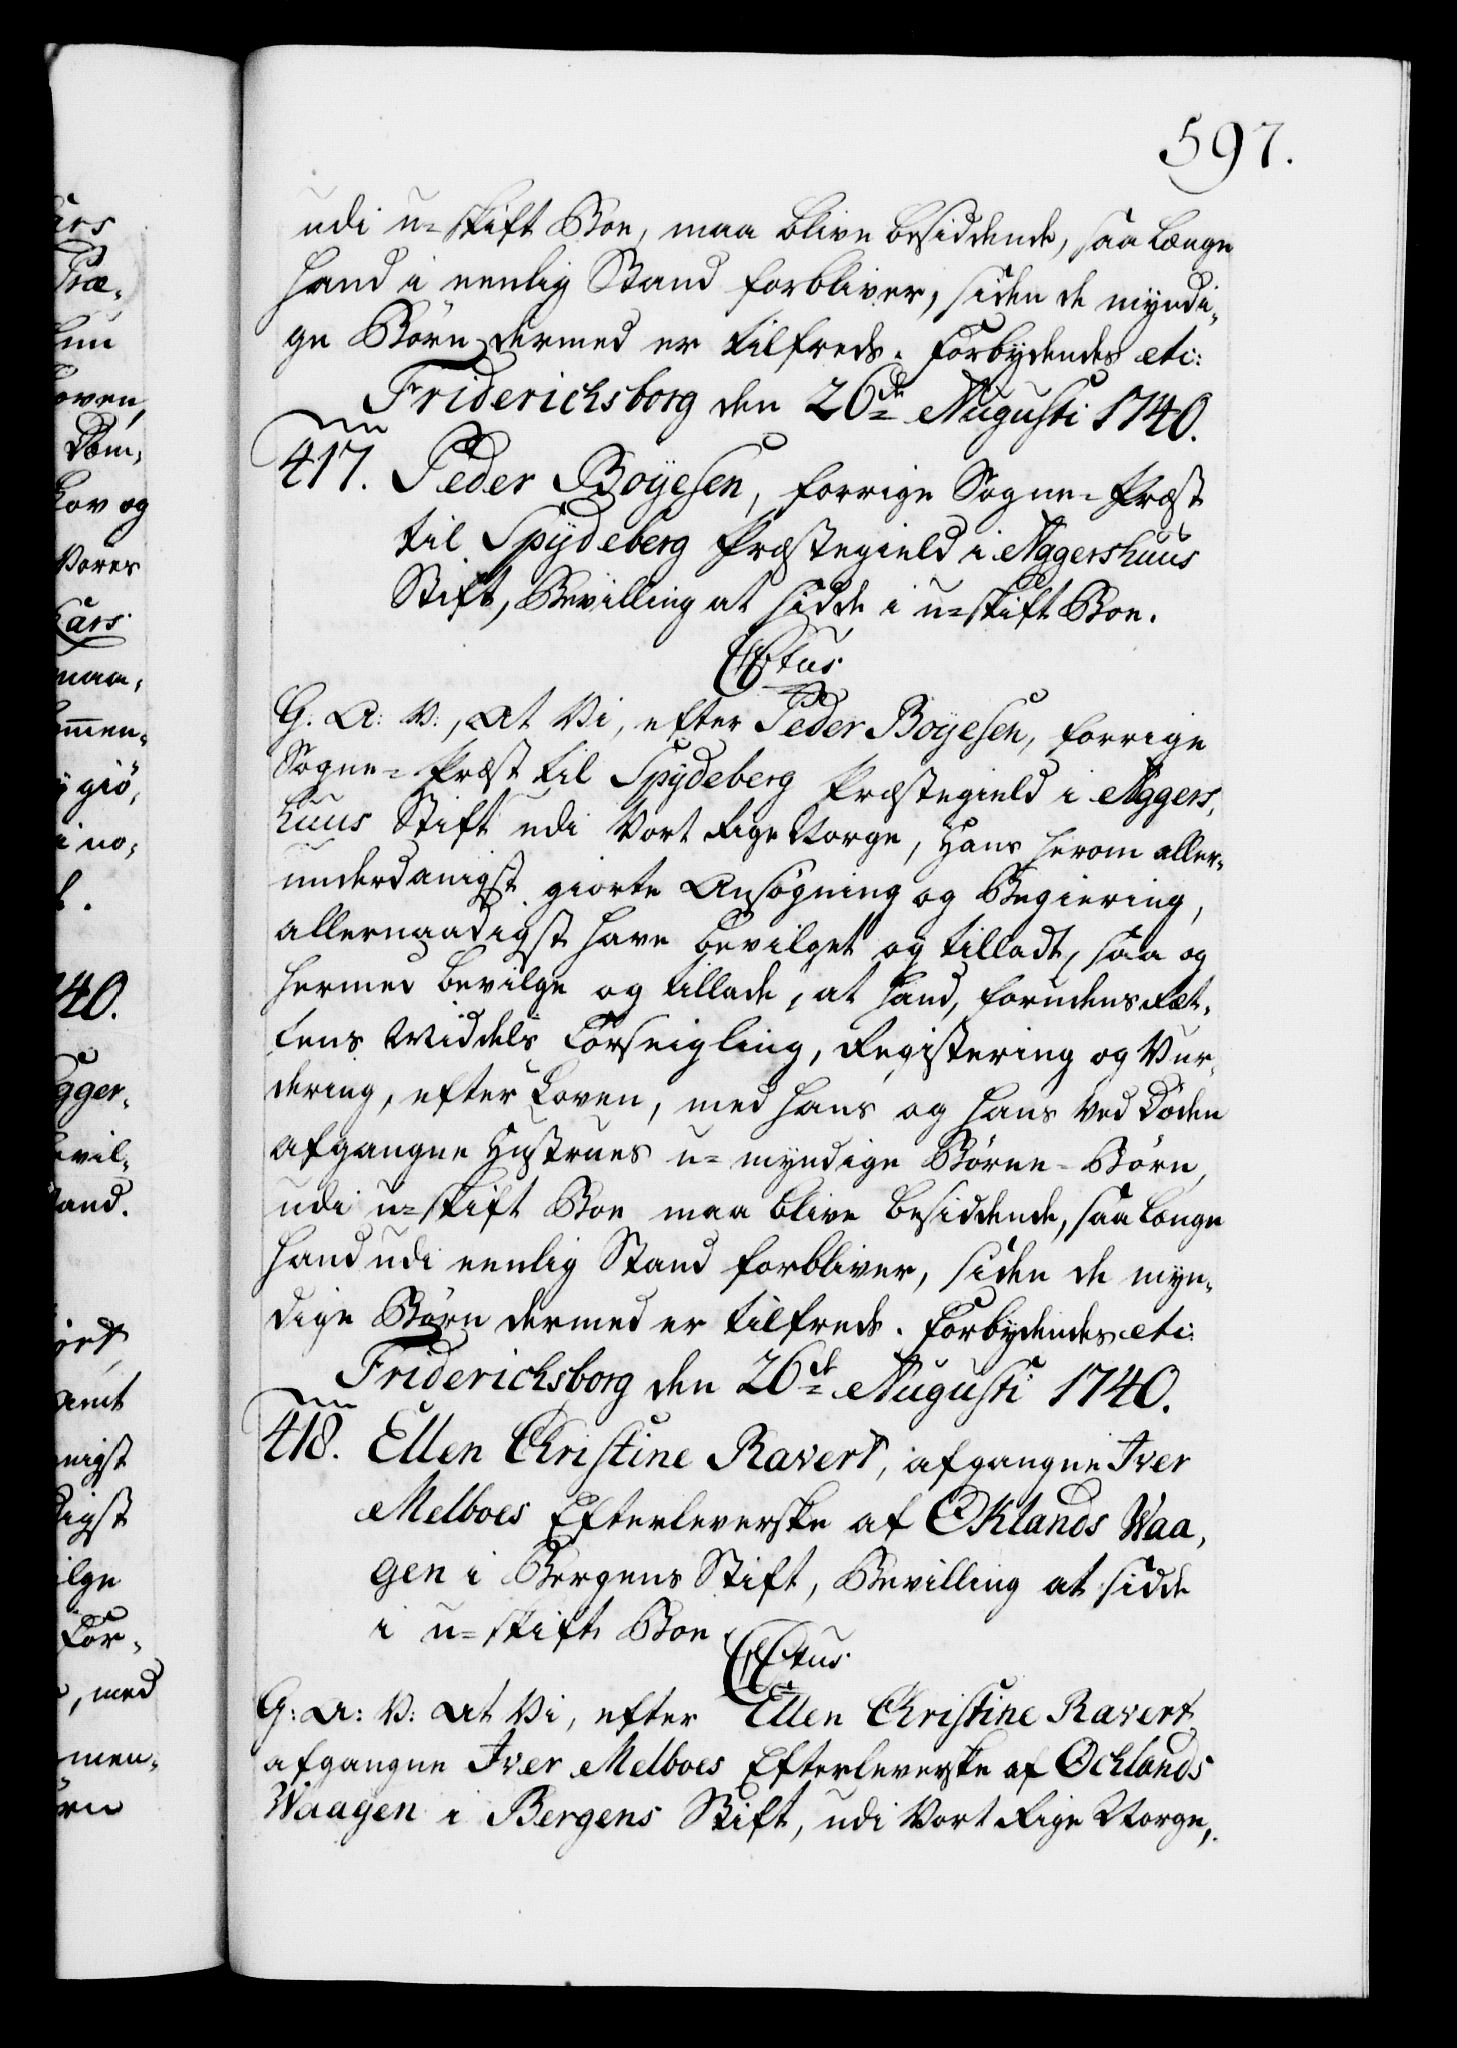 597.
udi u=skift Boe, maa blive besiddende, saa længe
Hand i eenlig Stand forbliver, siden de myndi-
ge Börn dermed er tilfreds. Forbydendes etc:
Friderichsborg den 26de Augusti 1740.
417. Peder Boÿesen, forrige Sogne=Præst
til Spÿdeberg Præstegield i Aggershuus
Stift, Bevilling at sidde i u=skift Boe.
G. A: V:, At Vi, efter Peder Boÿesen, forrige
Sogne=Præst til Spÿdeberg Præstegield i Aggers,
huus Stift udi Vort Rige Norge, Hans herom aller-
underdanigst giorte Ansögning og Begiering,
allernaadigst have bevilget og tilladt, saa og
hermed bevilge og tillade, at Hand, forudens Ret-
tens Middels Forseigling, Registering og Vur-
dering, efter Loven, med hans og hans ved Döden
afgangne Hustrues u=myndige Börne=Börn,
udi u=skift Boe maa blive besiddende, saa længe
Hand udi eenlig Stand forbliver, siden de myn-
dige Börn dermed er tilfreds. Forbydendes etc:
Friderichsborg den 26de Augusti 1740.
418. Ellen Christine Ravert, afgangne Iver
Melboes Efterleverske af Oklands Waa,
gen i Bergens Stift, Bevilling at sidde
i u=skift Boe
G: A: V: At Vi, efter Ellen Christine Ravert
afgangne Iver Melboes Efterleverske af Ochlands
Waagen i Bergens Stift, udi Vort Rige Norge,